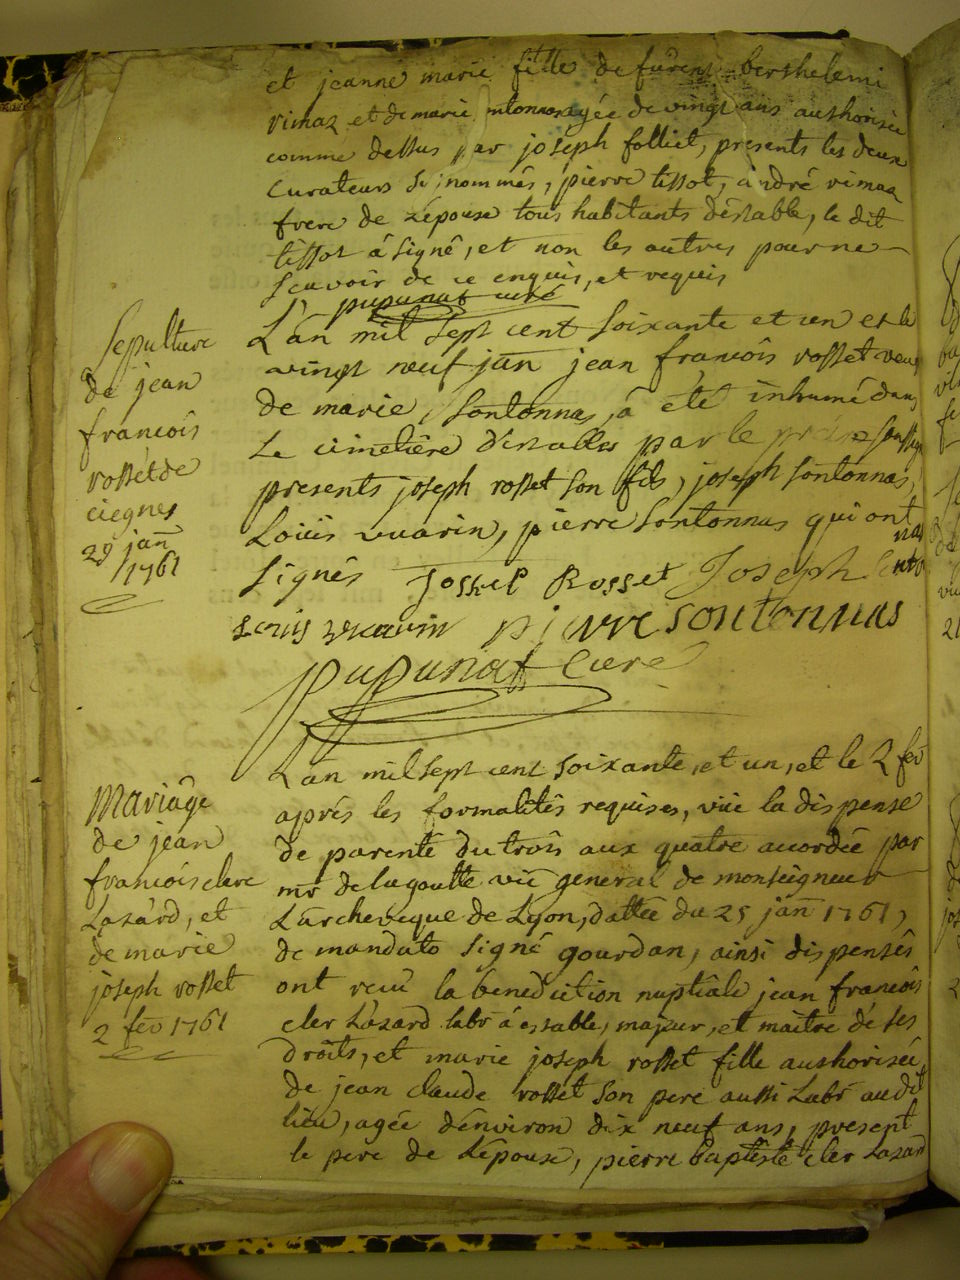 et jeanne marie fille de furent berthelemi
rimaz et de marie sontonnas agée de vingt ans authorisée
comme dessus par joseph folliet, presents les deux
curateurs sus nommés, pierre tissot, andré rimaz
frere de l'épouse tous habitants d'estable, le dit
tissot â signé, et non les autres pour ne
scavoir de ce enquis, et requis
pupunat curé
Sepulture
de jean
francois
rosset de
ciegnes
29 jan
1761
L'an mil sept cent soixante et un et le
vingt neuf jan jean francois rosset veuf
de marie sontonnas, â été inhumé dans
Le cimetière d'estables par le soussigné
presents joseph rosset son fils, joseph sontonnas,
Loüis vuarin, pierre sontonnas qui ont
signés Joseph Rosset Joseph sonto
nas
Louis vuarin pierre sontonnas
pupunat Curé
Mariage
de jean
francois clerc
Lazard, et
de marie
joseph rosset
2 fev 1761
L'an mil sept cent soixante, et un, et le 2 fev
aprés les formalités requises, vüe la dispense
de parenté du trois aux quatre accordée par
mr delagoutte vic general de monseigneur
L'archeveque de Lyon, dattée du 25 jan 1761,
de mandato signé gourdan, ainsi dispensés
ont recû la benediction nuptiale jean francois
cler Lazard labr â estable, majeur, et maitre de ses
droits, et marie joseph rosset fille authorisée
de jean claude rosset son pere aussi Labr audit
lieu, agée d'environ dix neuf ans, present
le pere de L'épouse, pierre baptiste cler Lazard